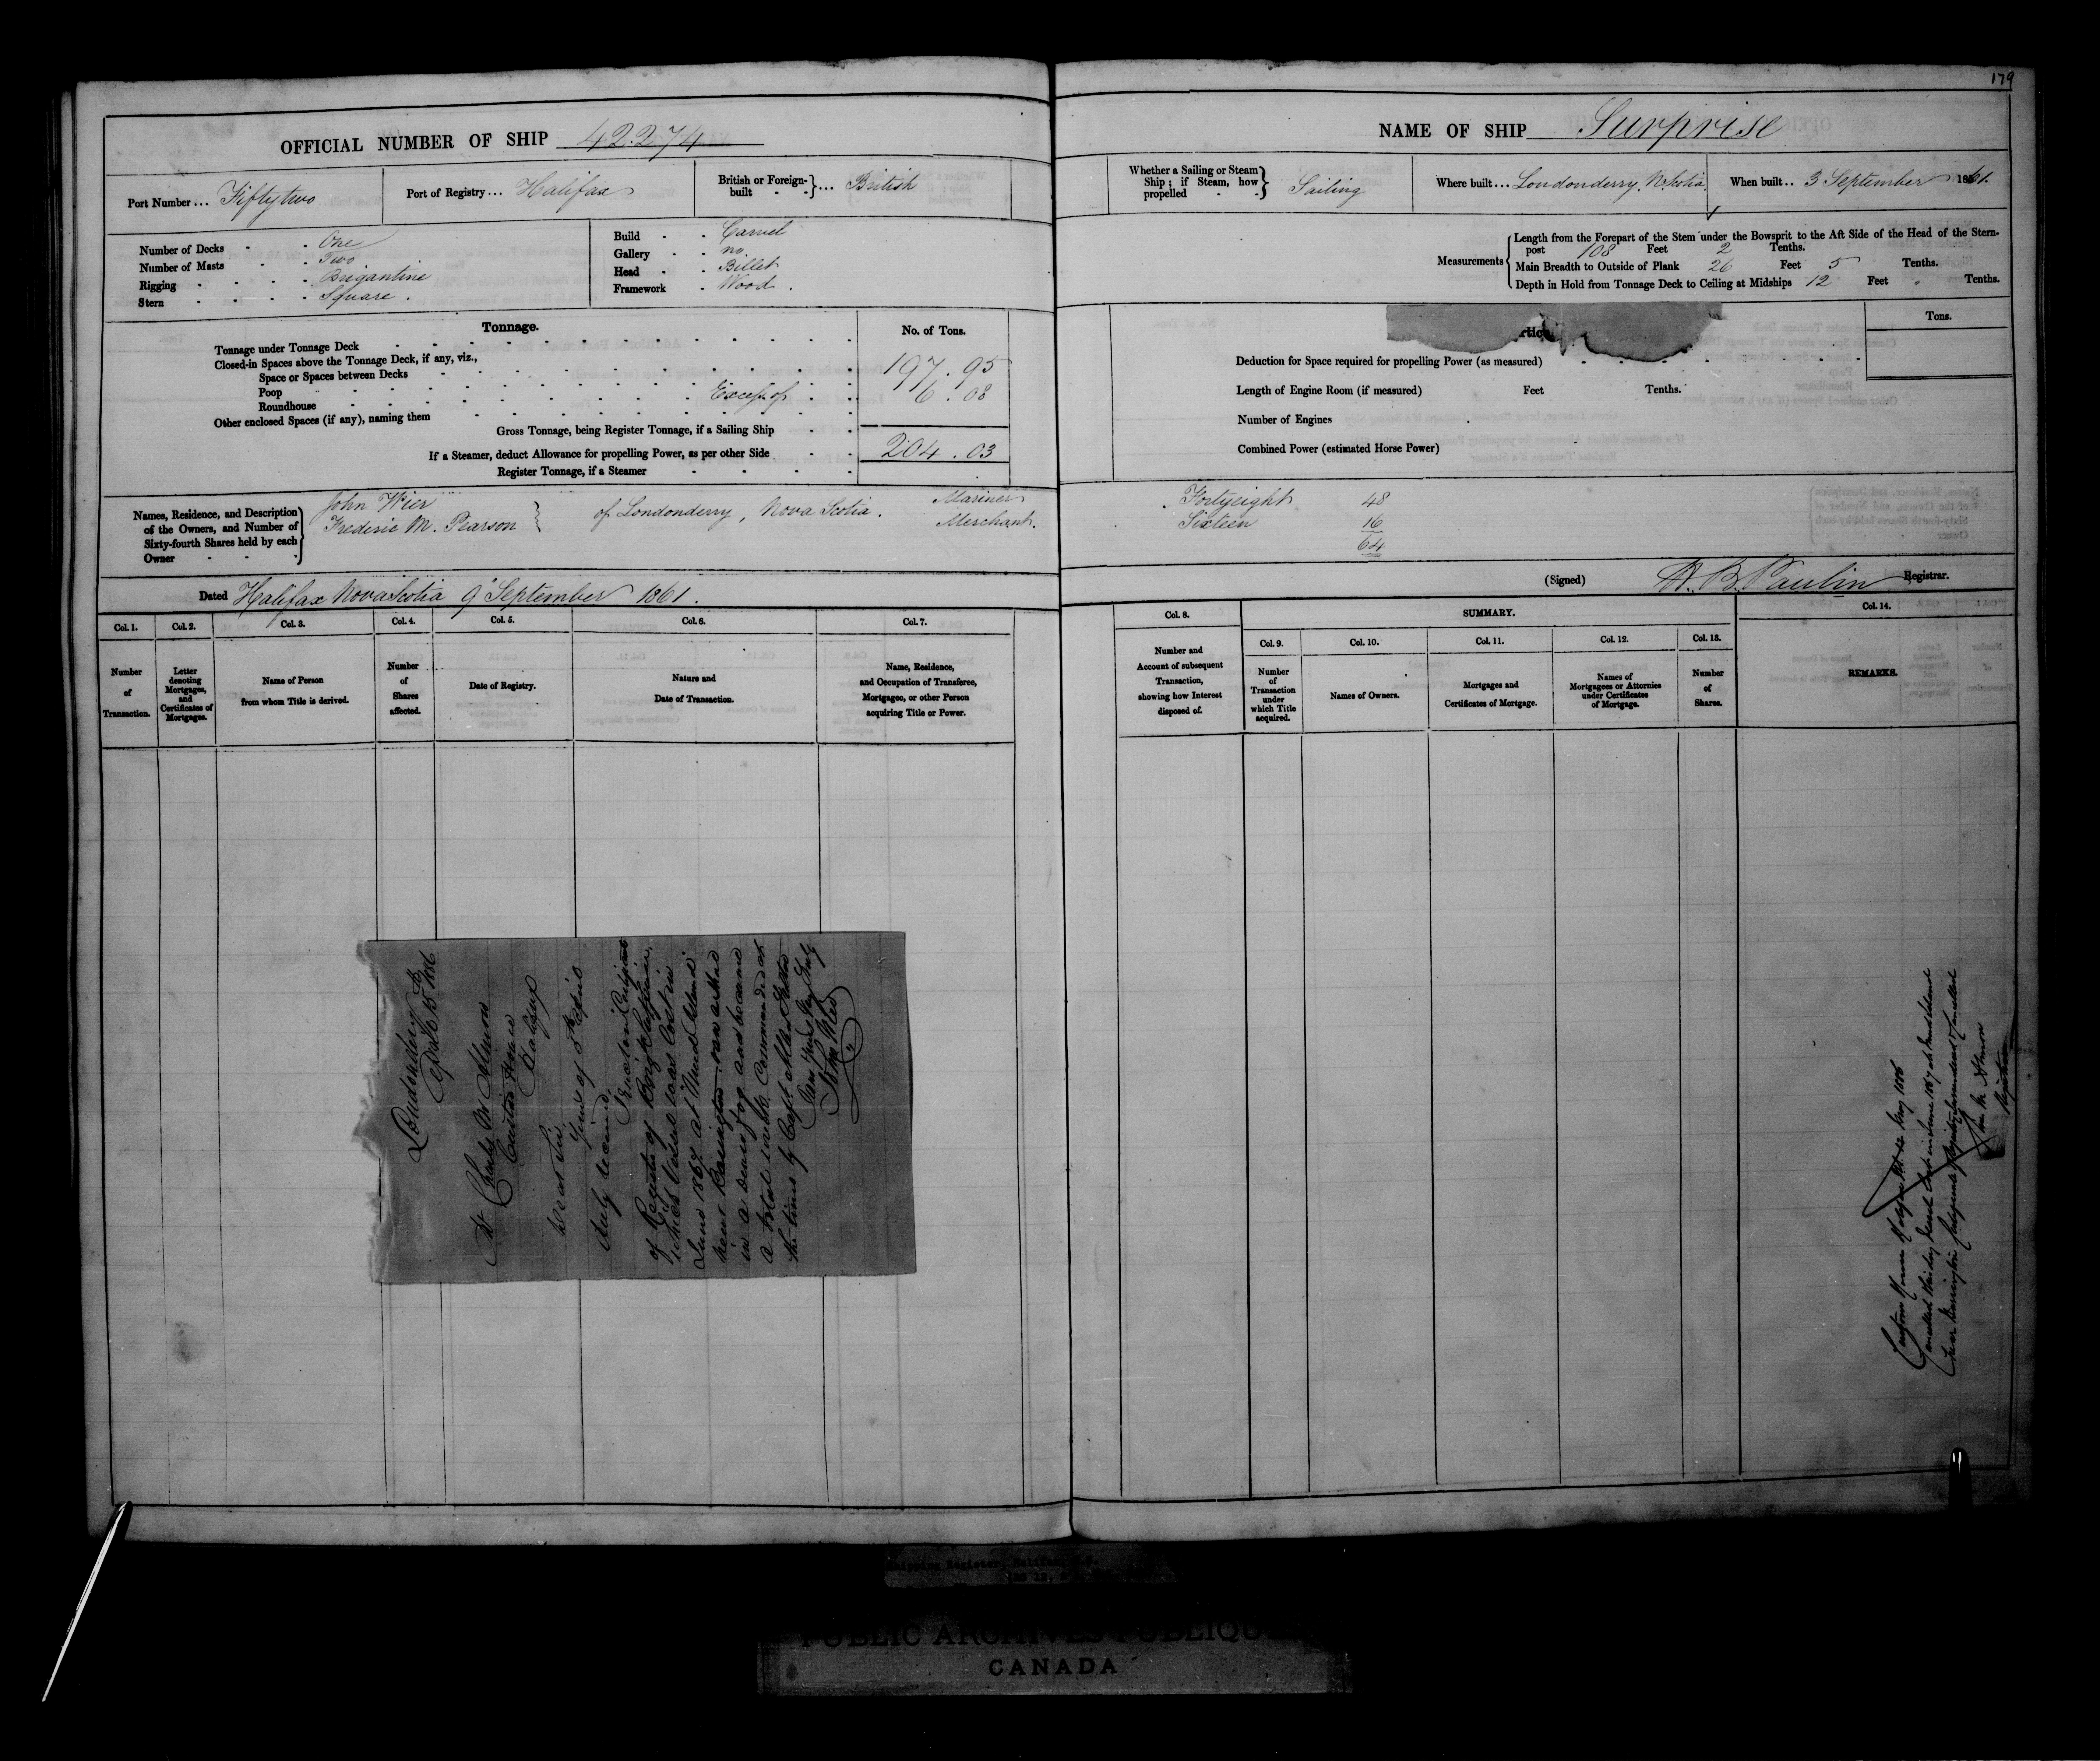 179
OFFICIAL NUMBER OF SHIP 42.274
Port Number ... Fiftytwo
Port of Registry ... Halifax
British or Foreign-built ... British
Number of Decks One
Number of Masts Two
Rigging Brigantine
Stern Square.
Build Carvel
Gallery no
Head Billet
Framework Wood.
Tonnage.
No. of Tons.
Tonnage under Tonnage Deck
Closed-in Spaces above the Tonnage Deck, if any, viz.,
Space or Spaces between Decks 197.95
Poop Excess of 6.08
Roundhouse
Other enclosed Spaces (if any), naming them
Gross Tonnage, being Register Tonnage, if a Sailing Ship
If a Steamer, deduct Allowance for propelling Power, as per other Side 204.03
Register Tonnage, if a Steamer
Names, Residence, and Description of the Owners, and Number of Sixty-fourth Shares held by each Owner
John Wier
Frederic M. Pearson
of Londonderry, Nova Scotia.
Mariner
Merchant.
Dated Halifax Nova Scotia 9th September 1861.
Col. 1. Col. 2. Col. 3. Col. 4. Col. 5. Col. 6. Col. 7.
Number of Transaction.
Letter denoting Mortgages, and Certificates of Mortgages.
Name of Person from whom Title is derived.
Number of Shares affected.
Date of Registry.
Nature and Date of Transaction.
Name, Residence, and Occupation of Transferee, Mortgagee, or other Person acquiring Title or Power.
Londonderry
15 1886
Charles W Almon
Custom House
Halifax
Dear Sir
Yours of
duly received
Enclosed
of Register of Brig Surprise,
which Vessel was lost in
June 1867 at Mud Island
near Barrington. ran ashore
in a dense fog and became
a total wreck Commanded at
the time by Capt
Yours Truly
John Wier
NAME OF SHIP Surprise
Whether a Sailing or Steam Ship; if Steam, how propelled Sailing
Where built ... Londonderry, N. Scotia
When built .. 3 September 1861.
Measurements
Length from the Forepart of the Stem under the Bowsprit to the Aft Side of the Head of the Stern-
post 108 Feet 2 Tenths.
Main Breadth to Outside of Plank 26 Feet 5 Tenths.
Depth in Hold from Tonnage Deck to Ceiling at Midships 12 Feet " Tenths.
Tons.
Deduction for Space required for propelling Power (as measured)
Length of Engine Room (if measured) Feet Tenths.
Number of Engines
Combined Power (estimated Horse Power)
Fortyeight 48
Sixteen 16
64
(Signed) Paulin Registrar.
Col. 8. SUMMARY. Col. 14.
Col. 9. Col. 10. Col. 11. Col. 12. Col. 13.
Number and Account of subsequent Transaction, showing how Interest disposed of.
Number of Transaction under which Title acquired.
Names of Owners.
Mortgages and Certificates of Mortgage.
Names of Mortgagees or Attornies under Certificates of Mortgage.
Number of Shares.
REMARKS.
Custom House Halifax N.S. 12 May 1886
Cancelled this day Vessel lost in June 1867 at Mud Island
near Barrington
Almon
Registrar
Shipping Register, Halifax, N.S.
PUBLIC ARCHIVES PUBLIQUES
CANADA